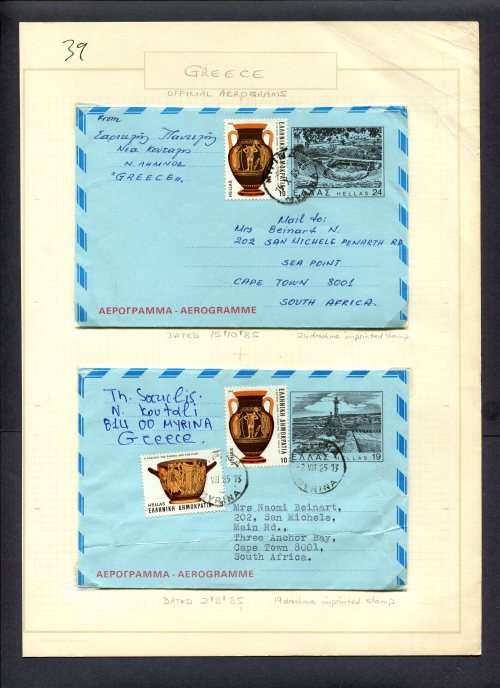 39
GREECE
OFFICIAL AEROGRAMS
From
Σαρικλής Παντελής
Νέα Κούταλη
Ν. ΛΗΜΝΟΣ
"GREECE"
ΕΛΛΗΝΙΚΗ ΔΗΜΟΚΡΑΤΙΑ
HELLAS
10
ΕΛΛΑΣ HELLAS 24
Mail to:
Mrs Beinart N.
202 SAN MICHELE PENARTH RD
SEA POINT
CAPE TOWN 8001
SOUTH AFRICA.
ΑΕΡΟΓΡΑΜΜΑ - AEROGRAMME
DATED 15*10*85
24 drachma imprinted stamp
Th.
N. Koutali
81400 MYRINA
Greece.
ΕΛΛΗΝΙΚΗ ΔΗΜΟΚΡΑΤΙΑ
HELLAS
10
ΕΛΛΑΣ HELLAS 19
HELLAS
ΕΛΛΗΝΙΚΗ ΔΗΜΟΚΡΑΤΙΑ
-2 VIII 85 13
MYRINA
Mrs Naomi Beinart,
202, San Michele,
Main Rd.,
Three Anchor Bay,
Cape Town 8001,
South Africa.
ΑΕΡΟΓΡΑΜΜΑ - AEROGRAMME
DATED 2*8*85
19 drachma imprinted stamp